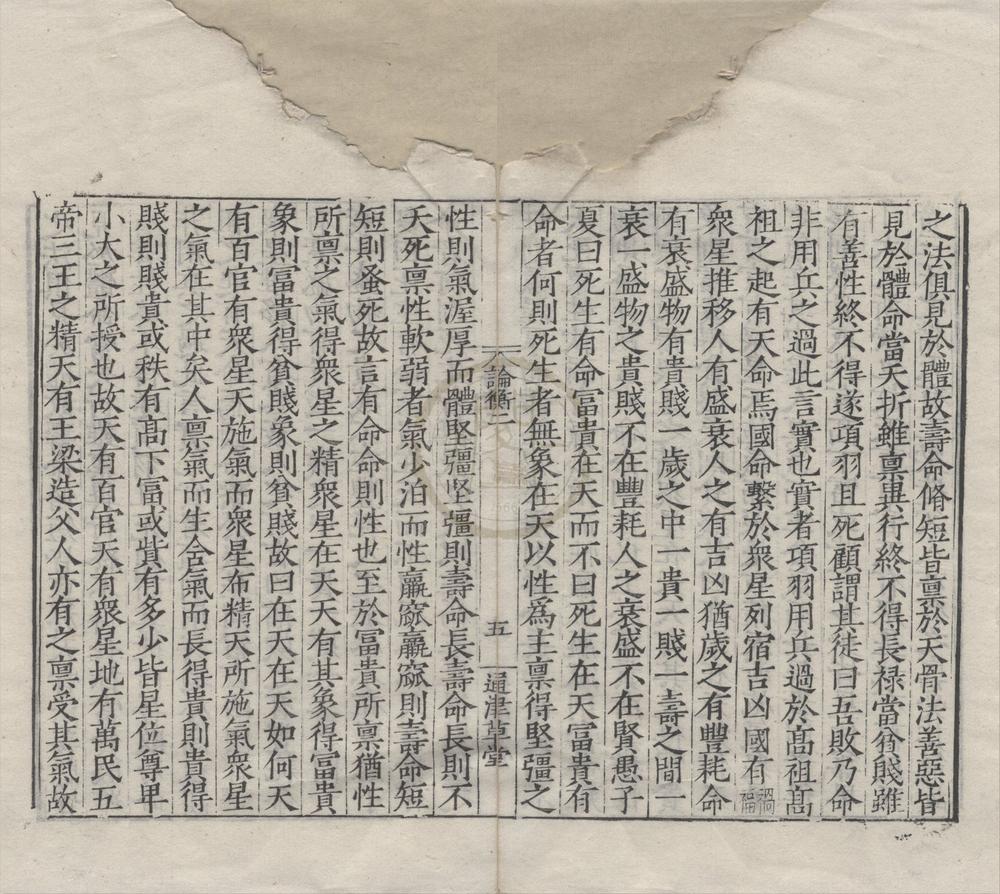 之法俱見於體故壽命脩短皆禀於天骨法善惡皆
見於體命當夭折雖禀異行終不得長禄當貧賤雖
有善性終不得遂項羽且死顧謂其徒曰吾敗乃命
非用兵之過此言實也實者項羽用兵過於高祖高
祖之起有天命焉國命繫於衆星列宿吉凶國有禍福
衆星推移人有盛衰人之有吉凶猶歲之有豐耗命
有衰盛物有貴賤一歲之中一貴一賤一壽之間一
衰一盛物之貴賤不在豐耗人之衰盛不在賢愚子
夏曰死生有命富貴在天而不曰死生在天富貴有
命者何則死生者無象在天以性爲主禀得堅彊之
論衡二 五 通津草堂
性則氣渥厚而體堅彊堅彊則壽命長壽命長則不
夭死禀性軟弱者氣少泊而性羸窳羸窳則壽命短
短則蚤死故言有命命則性也至於富貴所禀猶性
所禀之氣得衆星之精衆星在天天有其象得富貴
象則富貴得貧賤象則貧賤故曰在天在天如何天
有百官有衆星天施氣而衆星布精天所施氣衆星
之氣在其中矣人禀氣而生含氣而長得貴則貴得
賤則賤貴或秩有高下富或貲有多少皆星位尊卑
小大之所授也故天有百官天有衆星地有萬民五
帝三王之精天有王梁造父人亦有之禀受其氣故